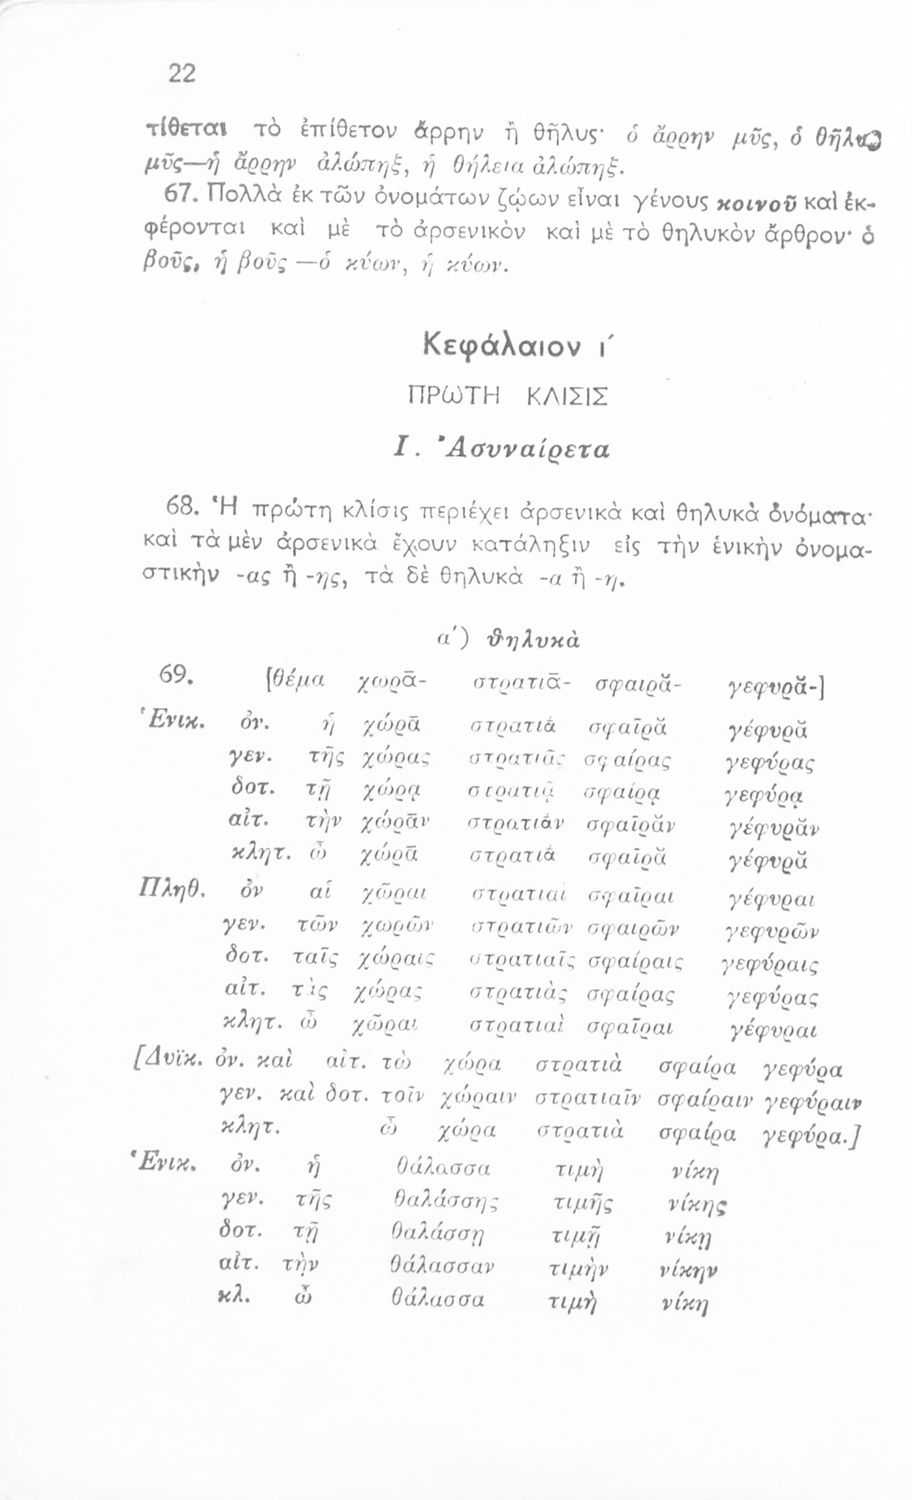 22
τίθεται τὸ ἐπίθετον ἄρρην ἢ θῆλυς· ὁ ἄρρην μῦς, ὁ θῆλυς
μῦς—ἡ ἄρρην ἀλώπηξ, ἡ θήλεια ἀλώπηξ.
67. Πολλὰ ἐκ τῶν ὀνομάτων ζῴων εἶναι γένους κοινοῦ καὶ ἐκ-
φέρονται καὶ μὲ τὸ ἀρσενικὸν καὶ μὲ τὸ θηλυκὸν ἄρθρον· ὁ
βοῦς, ἡ βοῦς —ὁ κύων, ἡ κύων.
Κεφάλαιον ι΄
ΠΡΩΤΗ ΚΛΙΣΙΣ
I. Ἀσυναίρετα
68. Ἡ πρώτη κλίσις περιέχει ἀρσενικὰ καὶ θηλυκὰ ὀνόματα·
καὶ τὰ μὲν ἀρσενικὰ ἔχουν κατάληξιν εἰς τὴν ἑνικὴν ὀνομα-
στικὴν -ας ἢ -ης, τὰ δὲ θηλυκὰ -α ἢ -η.
α΄) θηλυκὰ
69. [θέμα χωρᾱ- στρατιᾱ- σφαιρᾰ- γεφυρᾰ-]
Ἑνικ. ὀν. ἡ χώρᾱ στρατιά σφαῖρᾰ γέφυρᾰ
γεν. τῆς χώρας στρατιᾶς σφαίρας γεφύρας
δοτ. τῇ χώρᾳ στρατιᾷ σφαίρᾳ γεφύρᾳ
αἰτ. τὴν χώρᾱν στρατιάν σφαῖρᾰν γέφυρᾰν
κλητ. ὦ χώρᾱ στρατιά σφαῖρᾰ γέφυρᾰ
Πληθ. ὀν αἱ χῶραι στρατιαί σφαῖραι γέφυραι
γεν. τῶν χωρῶν στρατιῶν σφαιρῶν γεφυρῶν
δοτ. ταῖς χώραις στρατιαῖς σφαίραις γεφύραις
αἰτ. τὰς χώρας στρατιὰς σφαίρας γεφύρας
κλητ. ὦ χῶραι στρατιαὶ σφαῖραι γέφυραι
[Δυϊκ. ὀν. καὶ αἰτ. τὼ χώρα στρατιὰ σφαίρα γεφύρα
γεν. καὶ δοτ. τοῖν χώραιν στρατιαῖν σφαίραιν γεφύραιν
κλητ. ὦ χώρα στρατιὰ σφαίρα γεφύρα.]
Ἑνικ. ὀν. ἡ θάλασσα τιμὴ νίκη
γεν. τῆς θαλάσσης τιμῆς νίκης
δοτ. τῇ θαλάσσῃ τιμῇ νίκῃ
αἰτ. τὴν θάλασσαν τιμὴν νίκην
κλ. ὦ θάλασσα τιμὴ νίκη